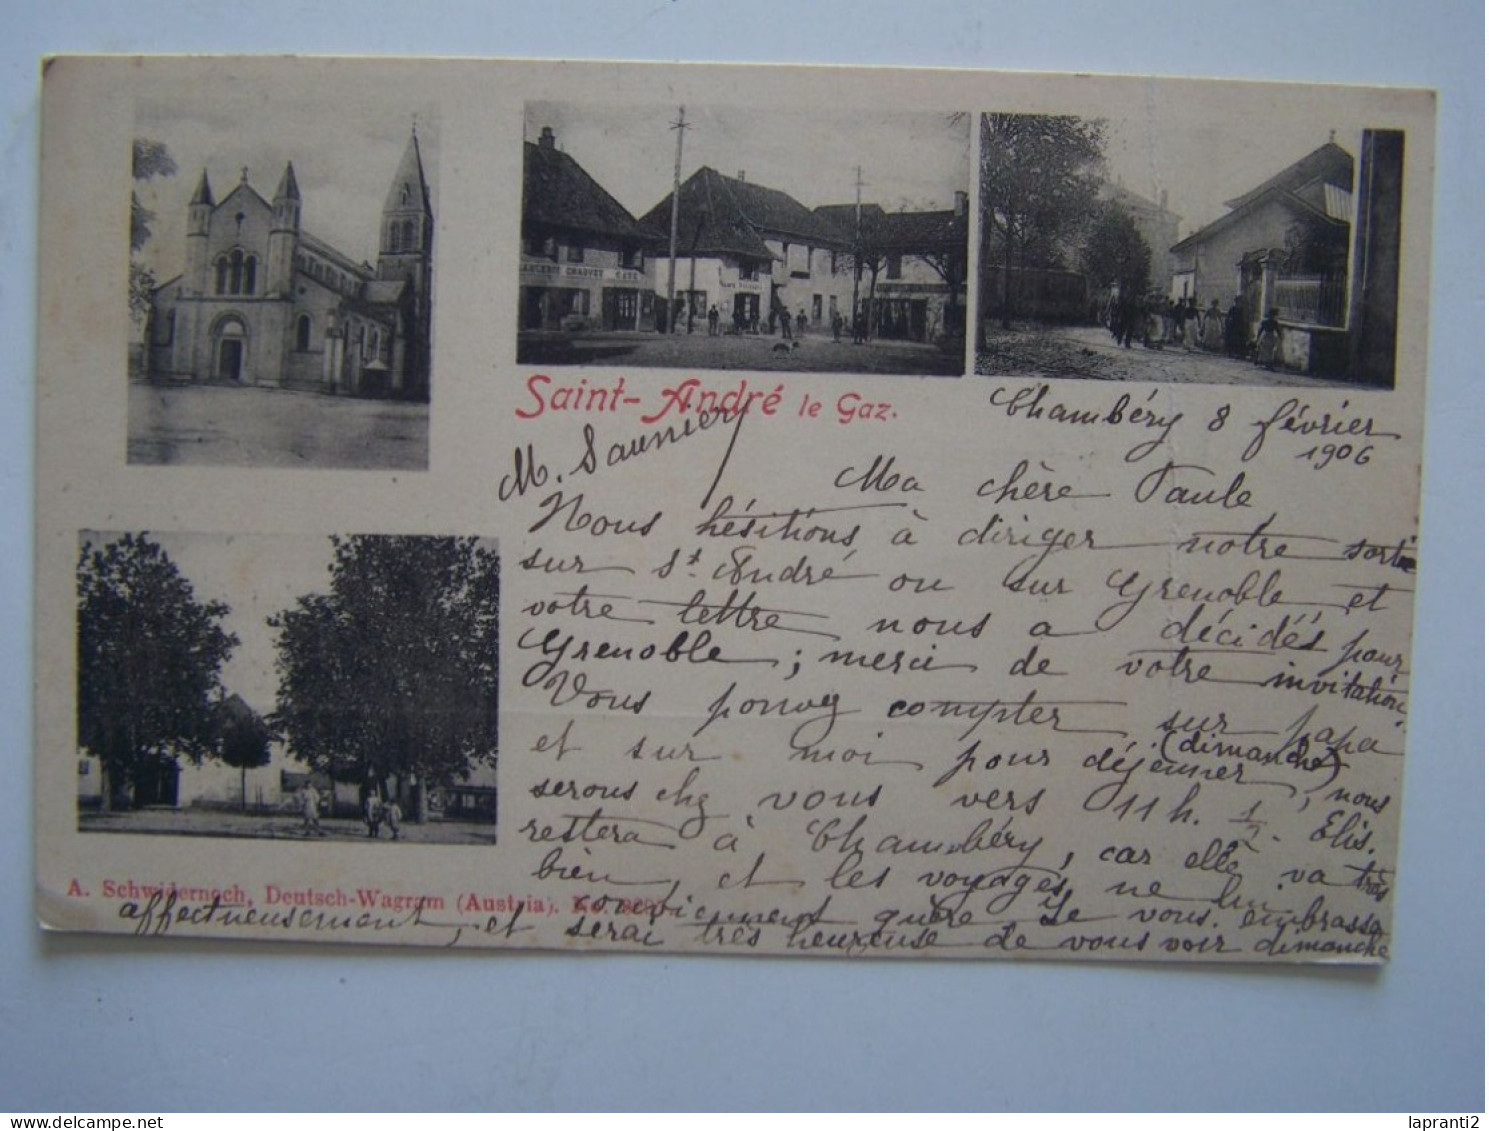 CHAUVET CAFE
Saint-André le Gaz.
Chambéry 8 février
1906
M. Saunier
Ma chère Paule
Nous hésitions à diriger notre sortie
sur St. André ou sur Grenoble et
votre lettre nous a décidés pour
Grenoble ; merci de votre invitation.
Vous pouvez compter sur papa
et sur moi pour déjeuner (dimanche), nous
serons chez vous vers 11 h. 1/2. Elis.
restera à Chambéry, car elle va très
bien, et les voyages ne lui
conviennent guère Je vous embrasse
affectueusement, et serai très heureuse de vous voir dimanche
A. Schwidernoch, Deutsch-Wagram (Austria). No.
delcampe.net
lapranti2